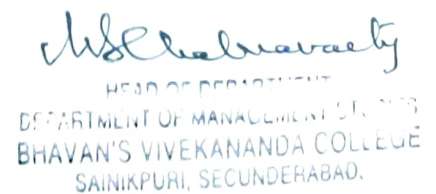 MSChakravarty
HEAD OF DEPARTMENT
DEPARTMENT OF MANAGEMENT STUDIES
BHAVAN'S VIVEKANANDA COLLEGE
SAINIKPURI, SECUNDERABAD.